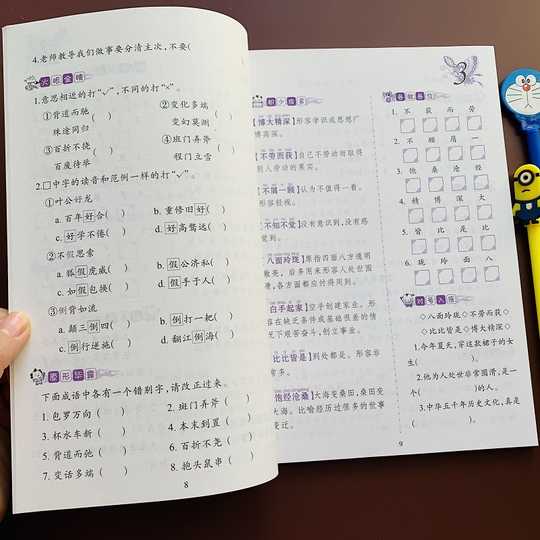 4.老师教导我们做事要分清主次，不要(
火眼金睛
1.意思相近的打“√”，不同的打“×”。
①背道而驰 ( )
殊途同归
②变化多端 ( )
变幻莫测
③百折不挠 ( )
百废待举
④班门弄斧 ( )
程门立雪
2.□中字的读音和范例一样的打“√”。
①叶公好龙
a. 百年好合( )
b. 重修旧好( )
c. 好学不倦( )
d. 好高骛远( )
②不假思索
a. 狐假虎威( )
b. 假公济私( )
c. 如假包换( )
d. 假手于人( )
③倒背如流
a. 颠三倒四( )
b. 倒打一耙( )
c. 倒行逆施( )
d. 翻江倒海( )
原形毕露
下面成语中各有一个错别字，请改正过来。
1. 包罗万向 ( )
2. 斑门弄斧 ( )
3. 杯水车新 ( )
4. 本末到置 ( )
5. 背道而弛 ( )
6. 百折不尧 ( )
7. 变话多端 ( )
8. 抱头鼠串 ( )
8
3
积少成多
【博大精深】形容学识或思想广
博高深。
【不劳而获】自己不劳动而取得
别人劳动的果实。
【不屑一顾】认为不值得一看。
形容轻视。
【不知不觉】没有意识到，没有感
觉到。
八面玲珑】原指四面八方透明
敞亮，后多用来形容人处世圆
滑，各方面都应付得周到。
白手起家】空手创建家业。形
容在缺乏条件或基础很差的情
况下艰苦奋斗，创立事业。
比比皆是】到处都是。形容非
常多。
饱经沧桑】大海变桑田，桑田变
大海。比喻经历过很多的世事
变迁。
各就各位
1. 不 获 而 劳
2. 不 顾 屑 一
3. 饱 桑 沧 经
4. 精 博 深 大
5. 皆 比 是 比
6. 珑 玲 面 八
对号入座
◇八面玲珑 ◇不劳而获◇
◇比比皆是◇博大精深◇
1.今年夏天，穿这款裙子的女
生( )。
2.他为人处世非常圆滑，是一
个( )的人。
3.中华五千年历史文化，真是
( )。
9